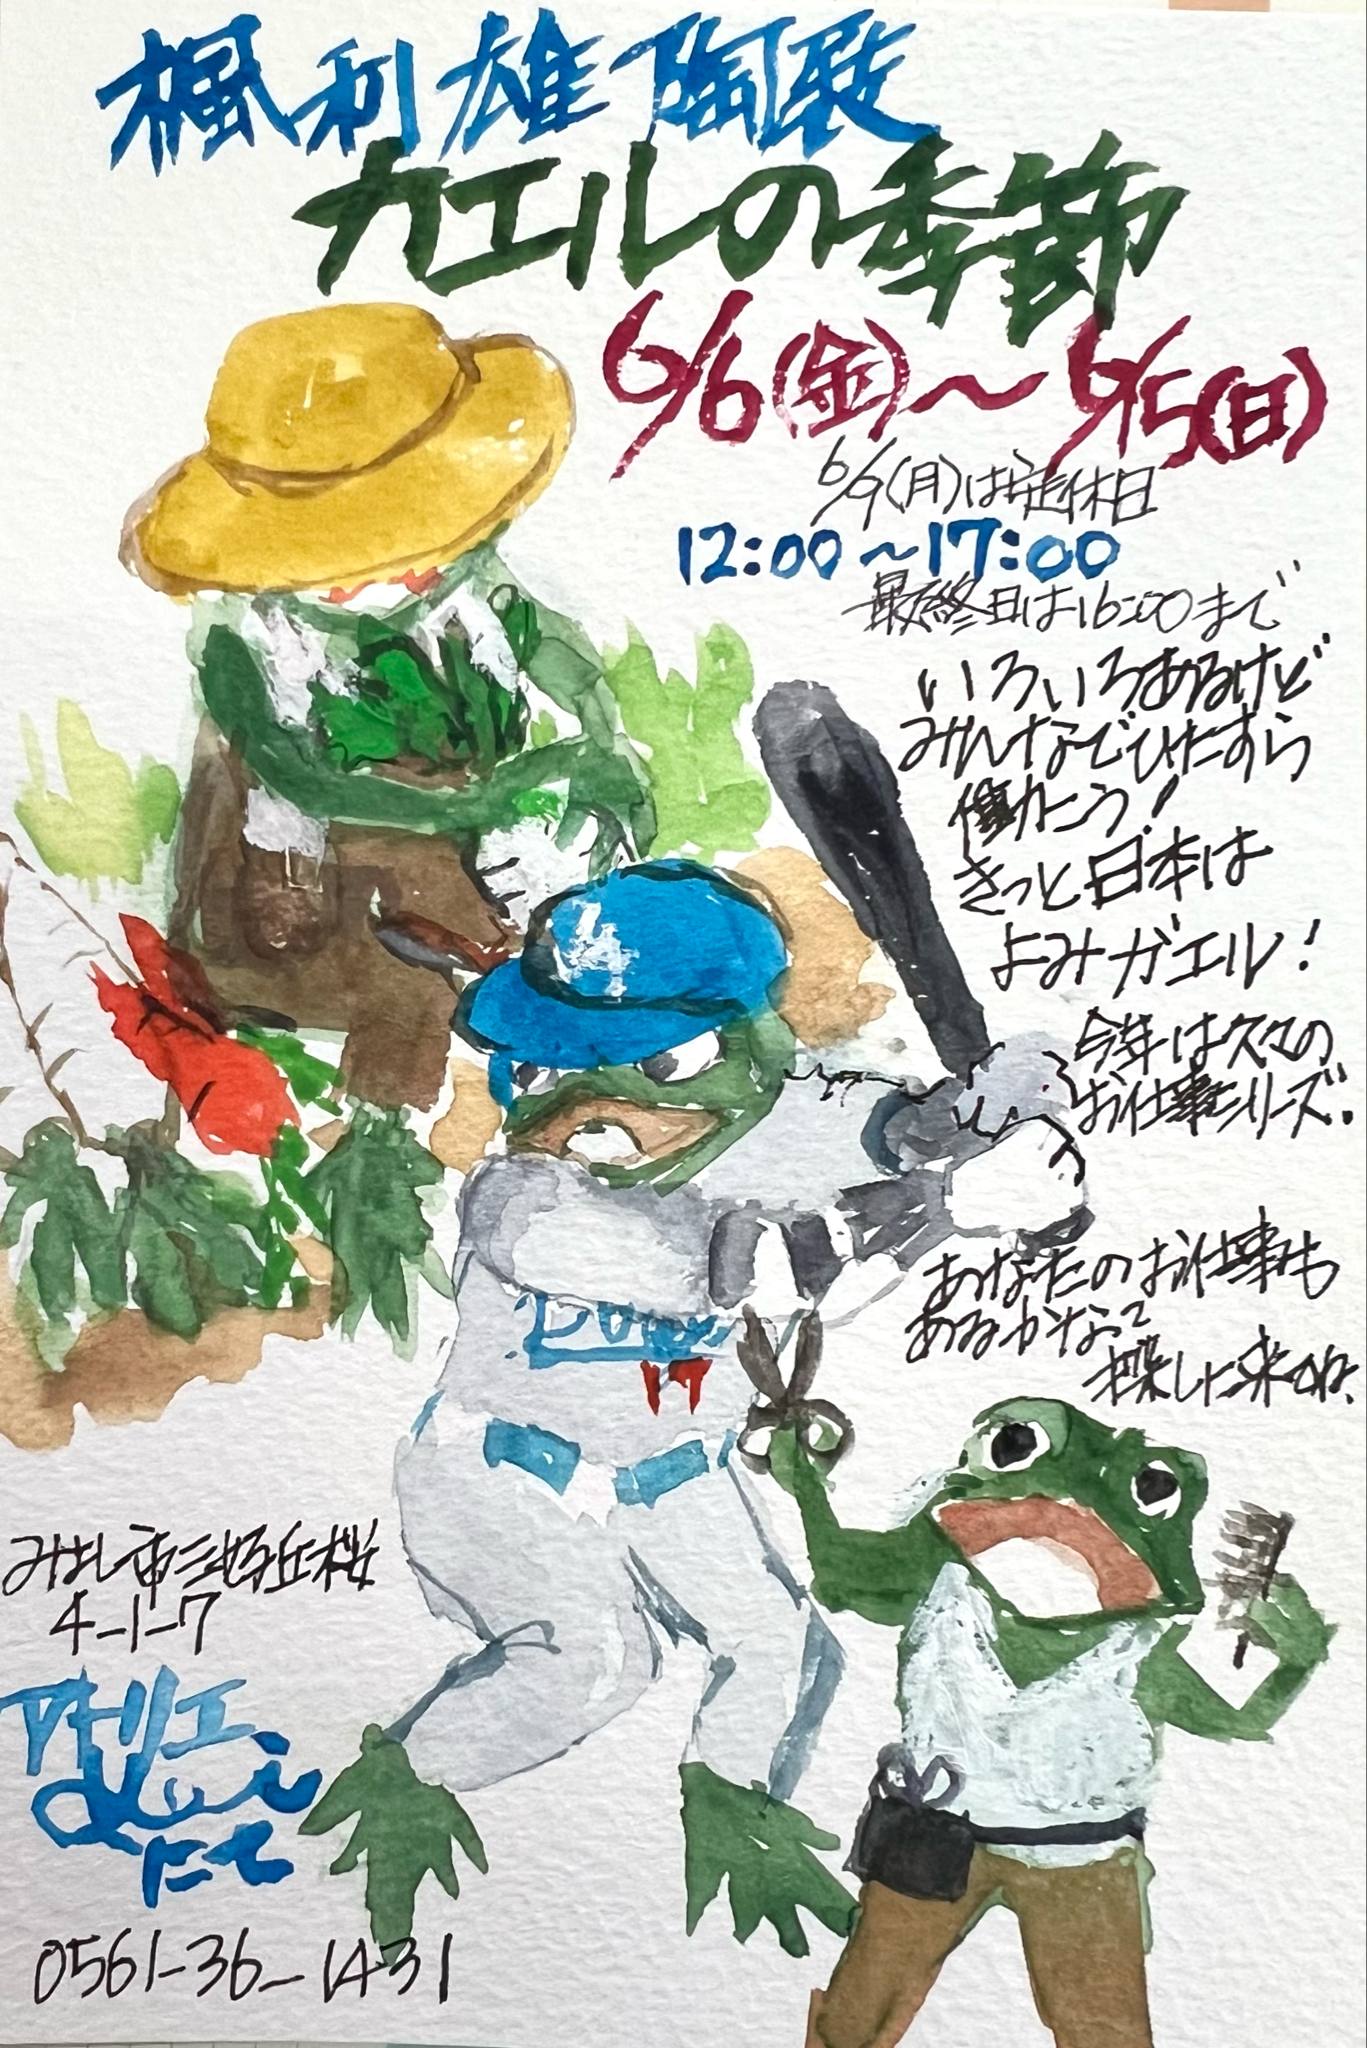 楓利雄陶展
カエルの季節
6/6(金)〜6/15(日)
6/9(月)は定休日
12:00〜17:00
最終日は16:00まで
いろいろあるけど
みんなでひたすら
働こう!
きっと日本は
よみガエル!
今年は久々の
お仕事シリーズ。
あなたのお仕事も
あるかな?
探しに来てね。
17
みよし市三好丘桜
4-1-7
アトリエ
にて
0561-36-1431